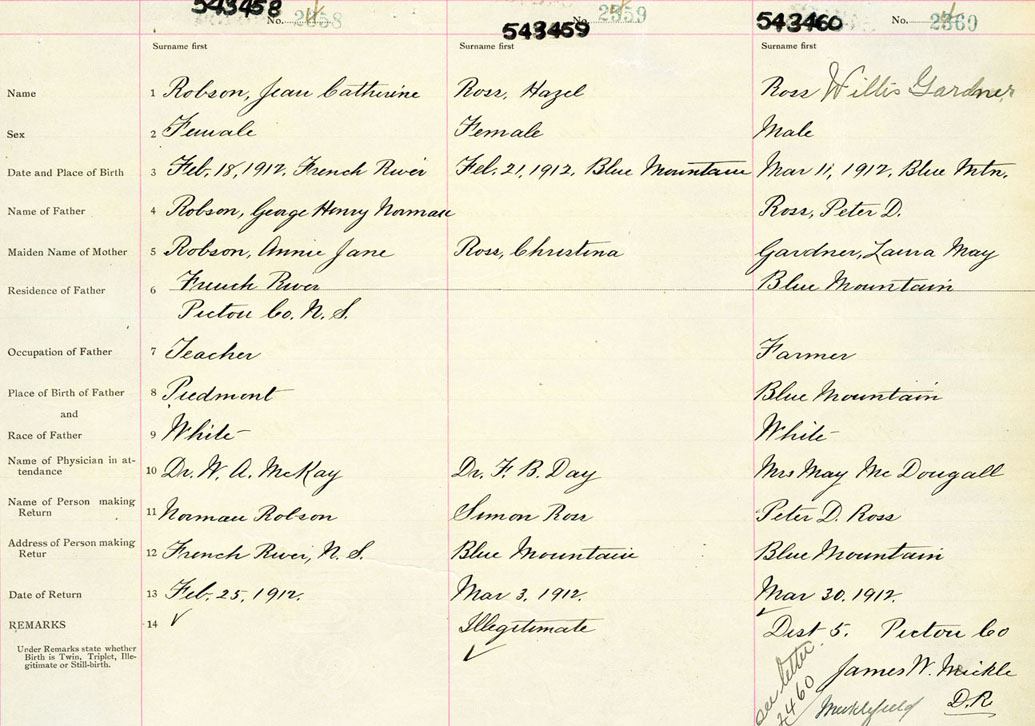 543458 No. 2358
543459 No. 2359
543460 No. 2360
Surname first Surname first Surname first
Name 1 Robson, Jean Catherine Ross, Hazel Ross Willis Gardner
Sex 2 Female Female Male
Date and Place of Birth 3 Feb. 18, 1912, French River Feb. 21, 1912, Blue Mountain Mar 11, 1912, Blue Mtn.
Name of Father 4 Robson, George Henry Norman Ross, Peter D.
Maiden Name of Mother 5 Robson, Annie Jane Ross, Christina Gardner, Laura May
Residence of Father 6 French River Blue Mountain
Pictou Co. N. S.
Occupation of Father 7 Teacher Farmer
Place of Birth of Father 8 Piedmont Blue Mountain
and
Race of Father 9 White White
Name of Physician in at-
tendance 10 Dr. W. A. McKay Dr. F. B. Day Mrs May Mc Dougall
Name of Person making
Return 11 Norman Robson Simon Ross Peter D. Ross
Address of Person making
Retur 12 French River, N. S. Blue Mountain Blue Mountain
Date of Return 13 Feb. 25, 1912. Mar 3, 1912. Mar 30, 1912.
REMARKS 14 ✓ Illegitimate Dist 5. Pictou Co
Under Remarks state whether
Birth is Twin, Triplet, Ille-
gitimate or Still-birth.
James W. Meikle
D.R.
see letter
2460